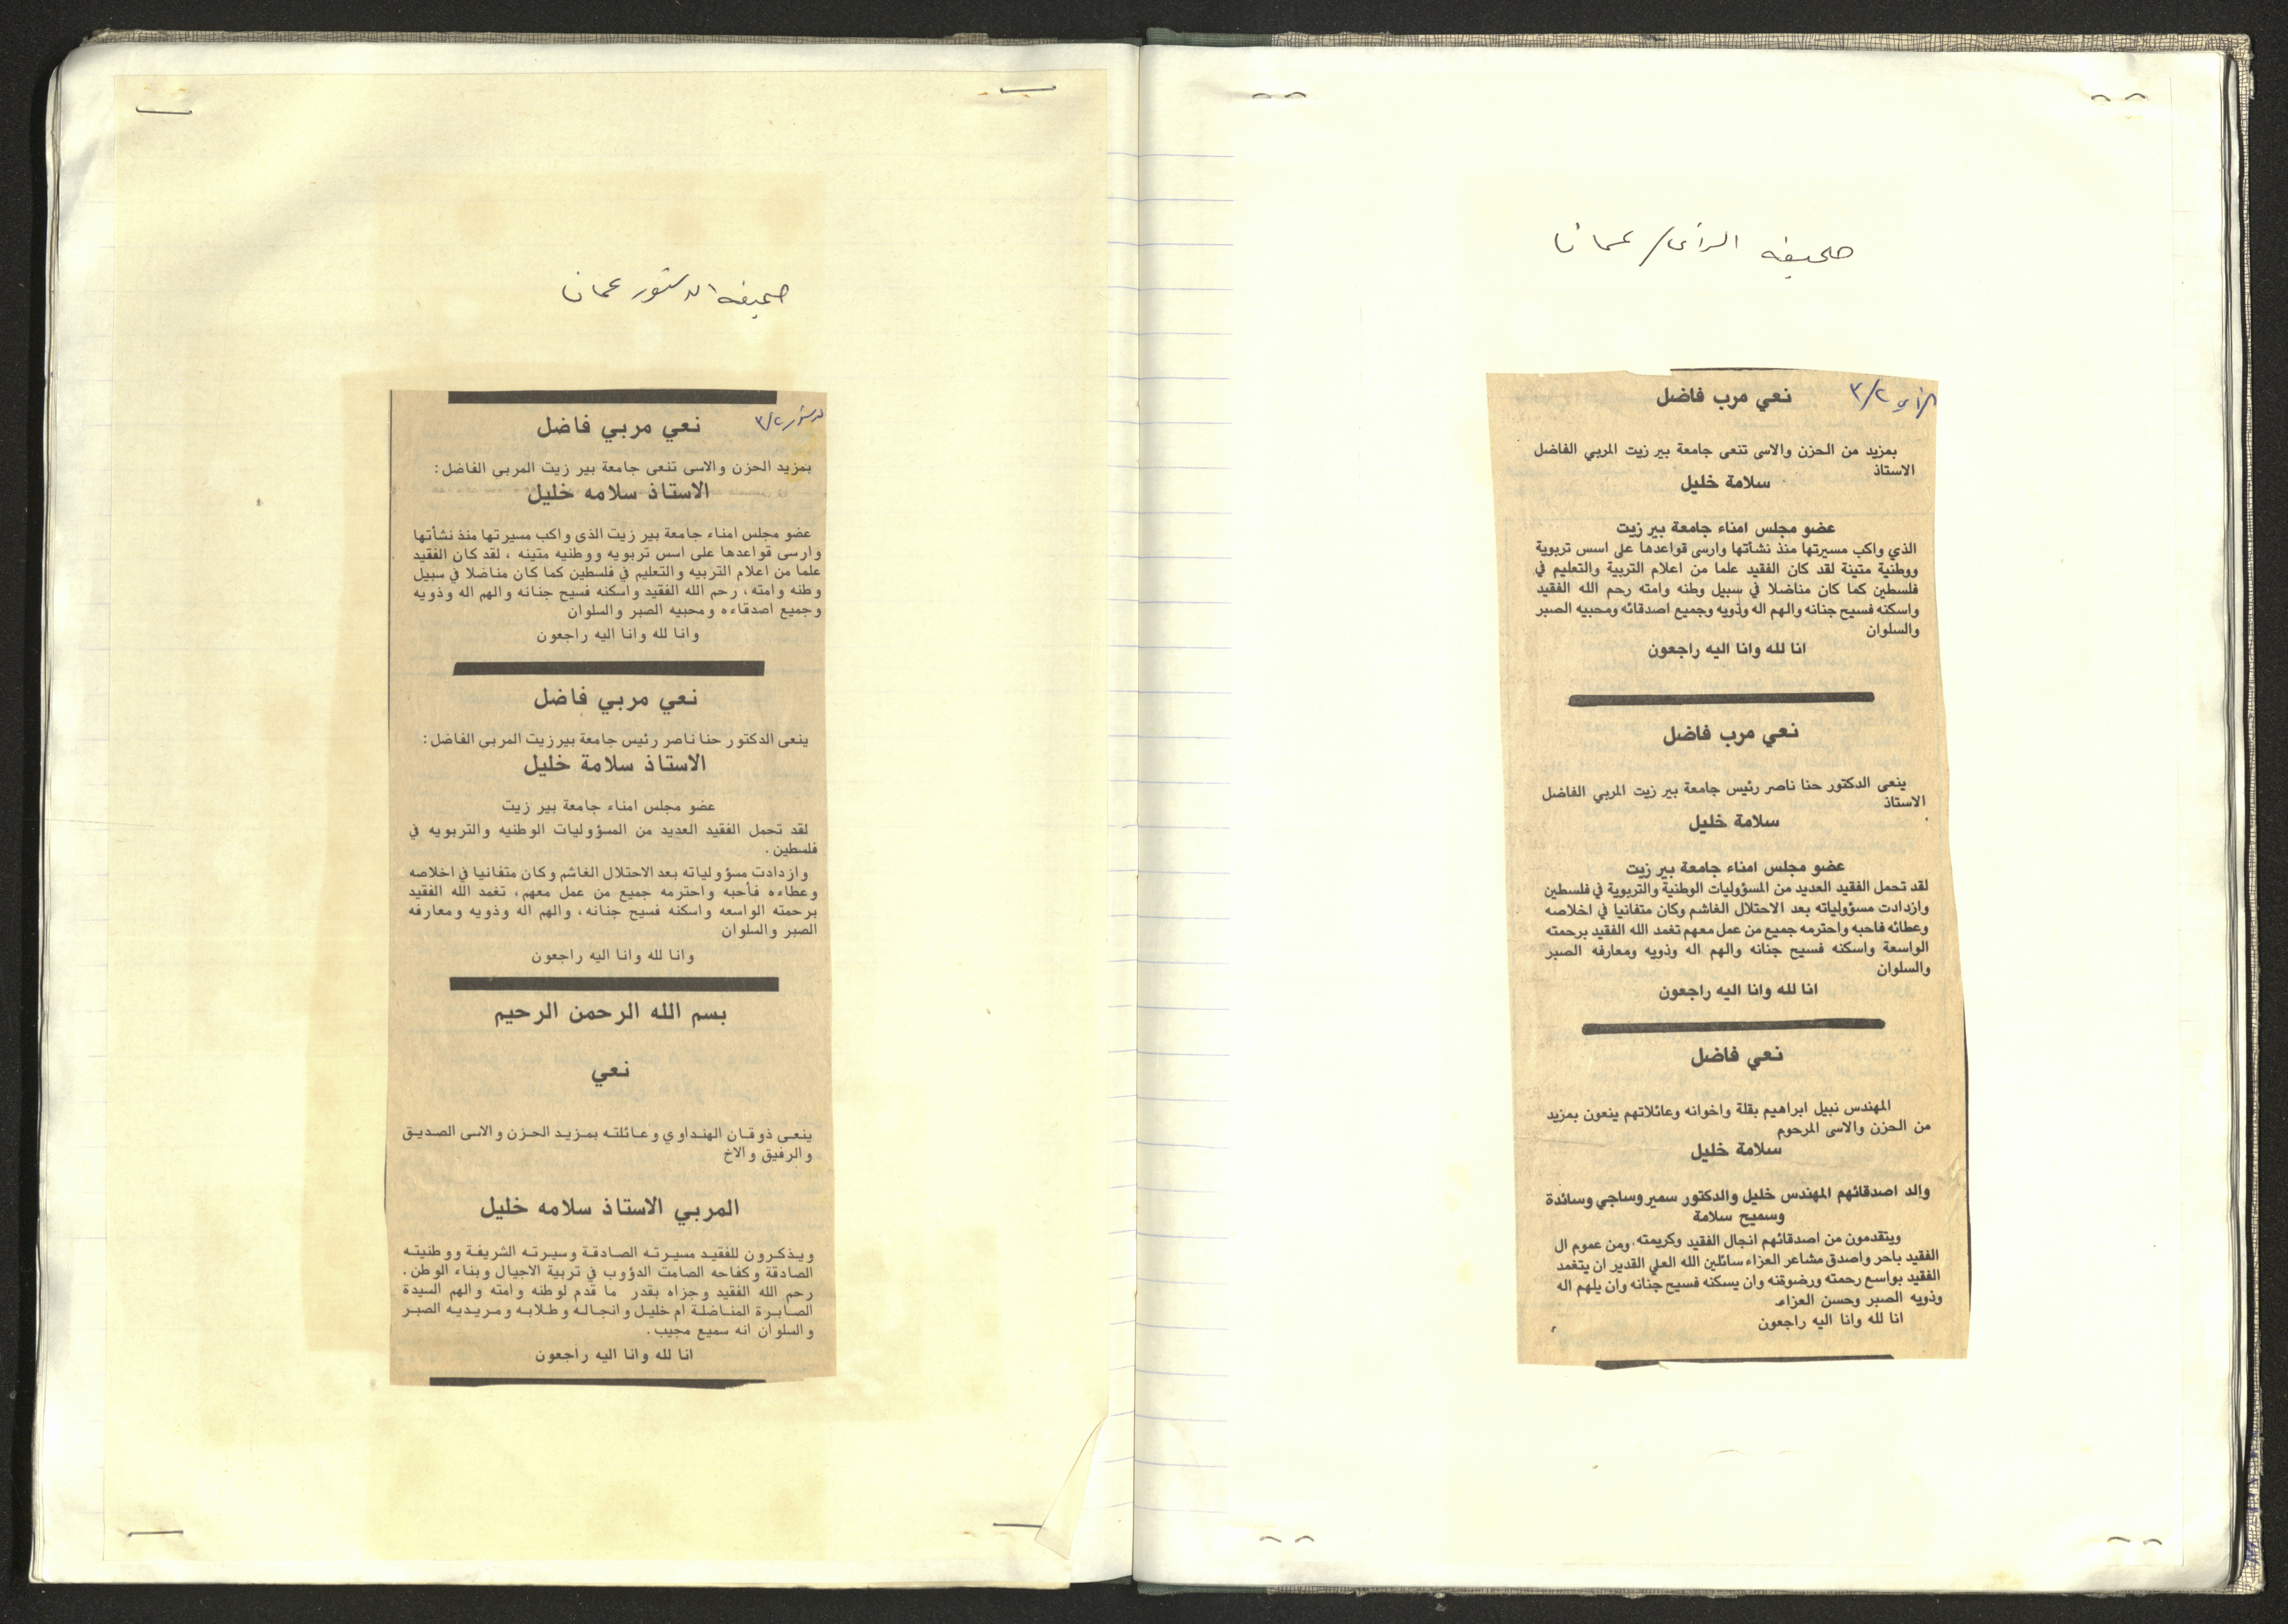 صحيفه الرأي / عمان
الرأي ٣/٢
نعي مرب فاضل
بمزيد من الحزن والاسى تنعى جامعة بير زيت المربي الفاضل
الاستاذ
سلامة خليل
عضو مجلس امناء جامعة بير زيت
الذي واكب مسيرتها منذ نشأتها وارسى قواعدها على اسس تربوية
ووطنية متينة لقد كان الفقيد علما من اعلام التربية والتعليم في
فلسطين كما كان مناضلا في سبيل وطنه وامته رحم الله الفقيد
واسكنه فسيح جنانه والهم اله وذويه وجميع اصدقائه ومحبيه الصبر
والسلوان
انا لله وانا اليه راجعون
نعي مرب فاضل
ينعى الدكتور حنا ناصر رئيس جامعة بير زيت المربي الفاضل
الاستاذ
سلامة خليل
عضو مجلس امناء جامعة بير زيت
لقد تحمل الفقيد العديد من المسؤوليات الوطنية والتربوية في فلسطين
وازدادت مسؤولياته بعد الاحتلال الغاشم وكان متفانيا في اخلاصه
وعطائه فاحبه واحترمه جميع من عمل معهم تغمد الله الفقيد برحمته
الواسعة واسكنه فسيح جنانه والهم اله وذويه ومعارفه الصبر
والسلوان
انا لله وانا اليه راجعون
نعي فاضل
المهندس نبيل ابراهيم بقلة واخوانه وعائلاتهم ينعون بمزيد
من الحزن والاسى المرحوم
سلامة خليل
والد اصدقائهم المهندس خليل والدكتور سمير وساجي وسائدة
وسميح سلامة
ويتقدمون من اصدقائهم انجال الفقيد وكريمته ومن عموم ال
الفقيد باحر واصدق مشاعر العزاء سائلين الله العلي القدير ان يتغمد
الفقيد بواسع رحمته ورضوقنه وان يسكنه فسيح جنانه وان يلهم اله
وذويه الصبر وحسن العزاء.
انا لله وانا اليه راجعون
صحيفه الدستور عمان
الدستور ٣/٢
نعي مربي فاضل
بمزيد الحزن والاسى تنعى جامعة بير زيت المربي الفاضل:
الاستاذ سلامه خليل
عضو مجلس امناء جامعة بير زيت الذي واكب مسيرتها منذ نشأتها
وارسى قواعدها على اسس تربويه ووطنيه متينه ، لقد كان الفقيد
علما من اعلام التربيه والتعليم في فلسطين كما كان مناضلا في سبيل
وطنه وامته، رحم الله الفقيد واسكنه فسيح جنانه والهم اله وذويه
وجميع اصدقاءه ومحبيه الصبر والسلوان
وانا لله وانا اليه راجعون
نعي مربي فاضل
ينعى الدكتور حنا ناصر رئيس جامعة بيرزيت المربي الفاضل:
الاستاذ سلامة خليل
عضو مجلس امناء جامعة بير زيت
لقد تحمل الفقيد العديد من المسؤوليات الوطنيه والتربويه في
فلسطين .
وازدادت مسؤولياته بعد الاحتلال الغاشم وكان متفانيا في اخلاصه
وعطاءه فأحبه واحترمه جميع من عمل معهم، تغمد الله الفقيد
برحمته الواسعه واسكنه فسيح جنانه، والهم اله وذويه ومعارفه
الصبر والسلوان
وانا لله وانا اليه راجعون
بسم الله الرحمن الرحيم
نعي
ينعى ذوقان الهنداوي وعائلته بمزيد الحزن والاسى الصديق
والرفيق والاخ
المربي الاستاذ سلامه خليل
ويذكرون للفقيد مسيرته الصادقة وسيرته الشريفة ووطنيته
الصادقة وكفاحه الصامت الدؤوب في تربية الاجيال وبناء الوطن.
رحم الله الفقيد وجزاه بقدر ما قدم لوطنه وامته والهم السيدة
الصابرة المناضلة ام خليل وانجاله وطلابه ومريديه الصبر
والسلوان انه سميع مجيب.
انا لله وانا اليه راجعون